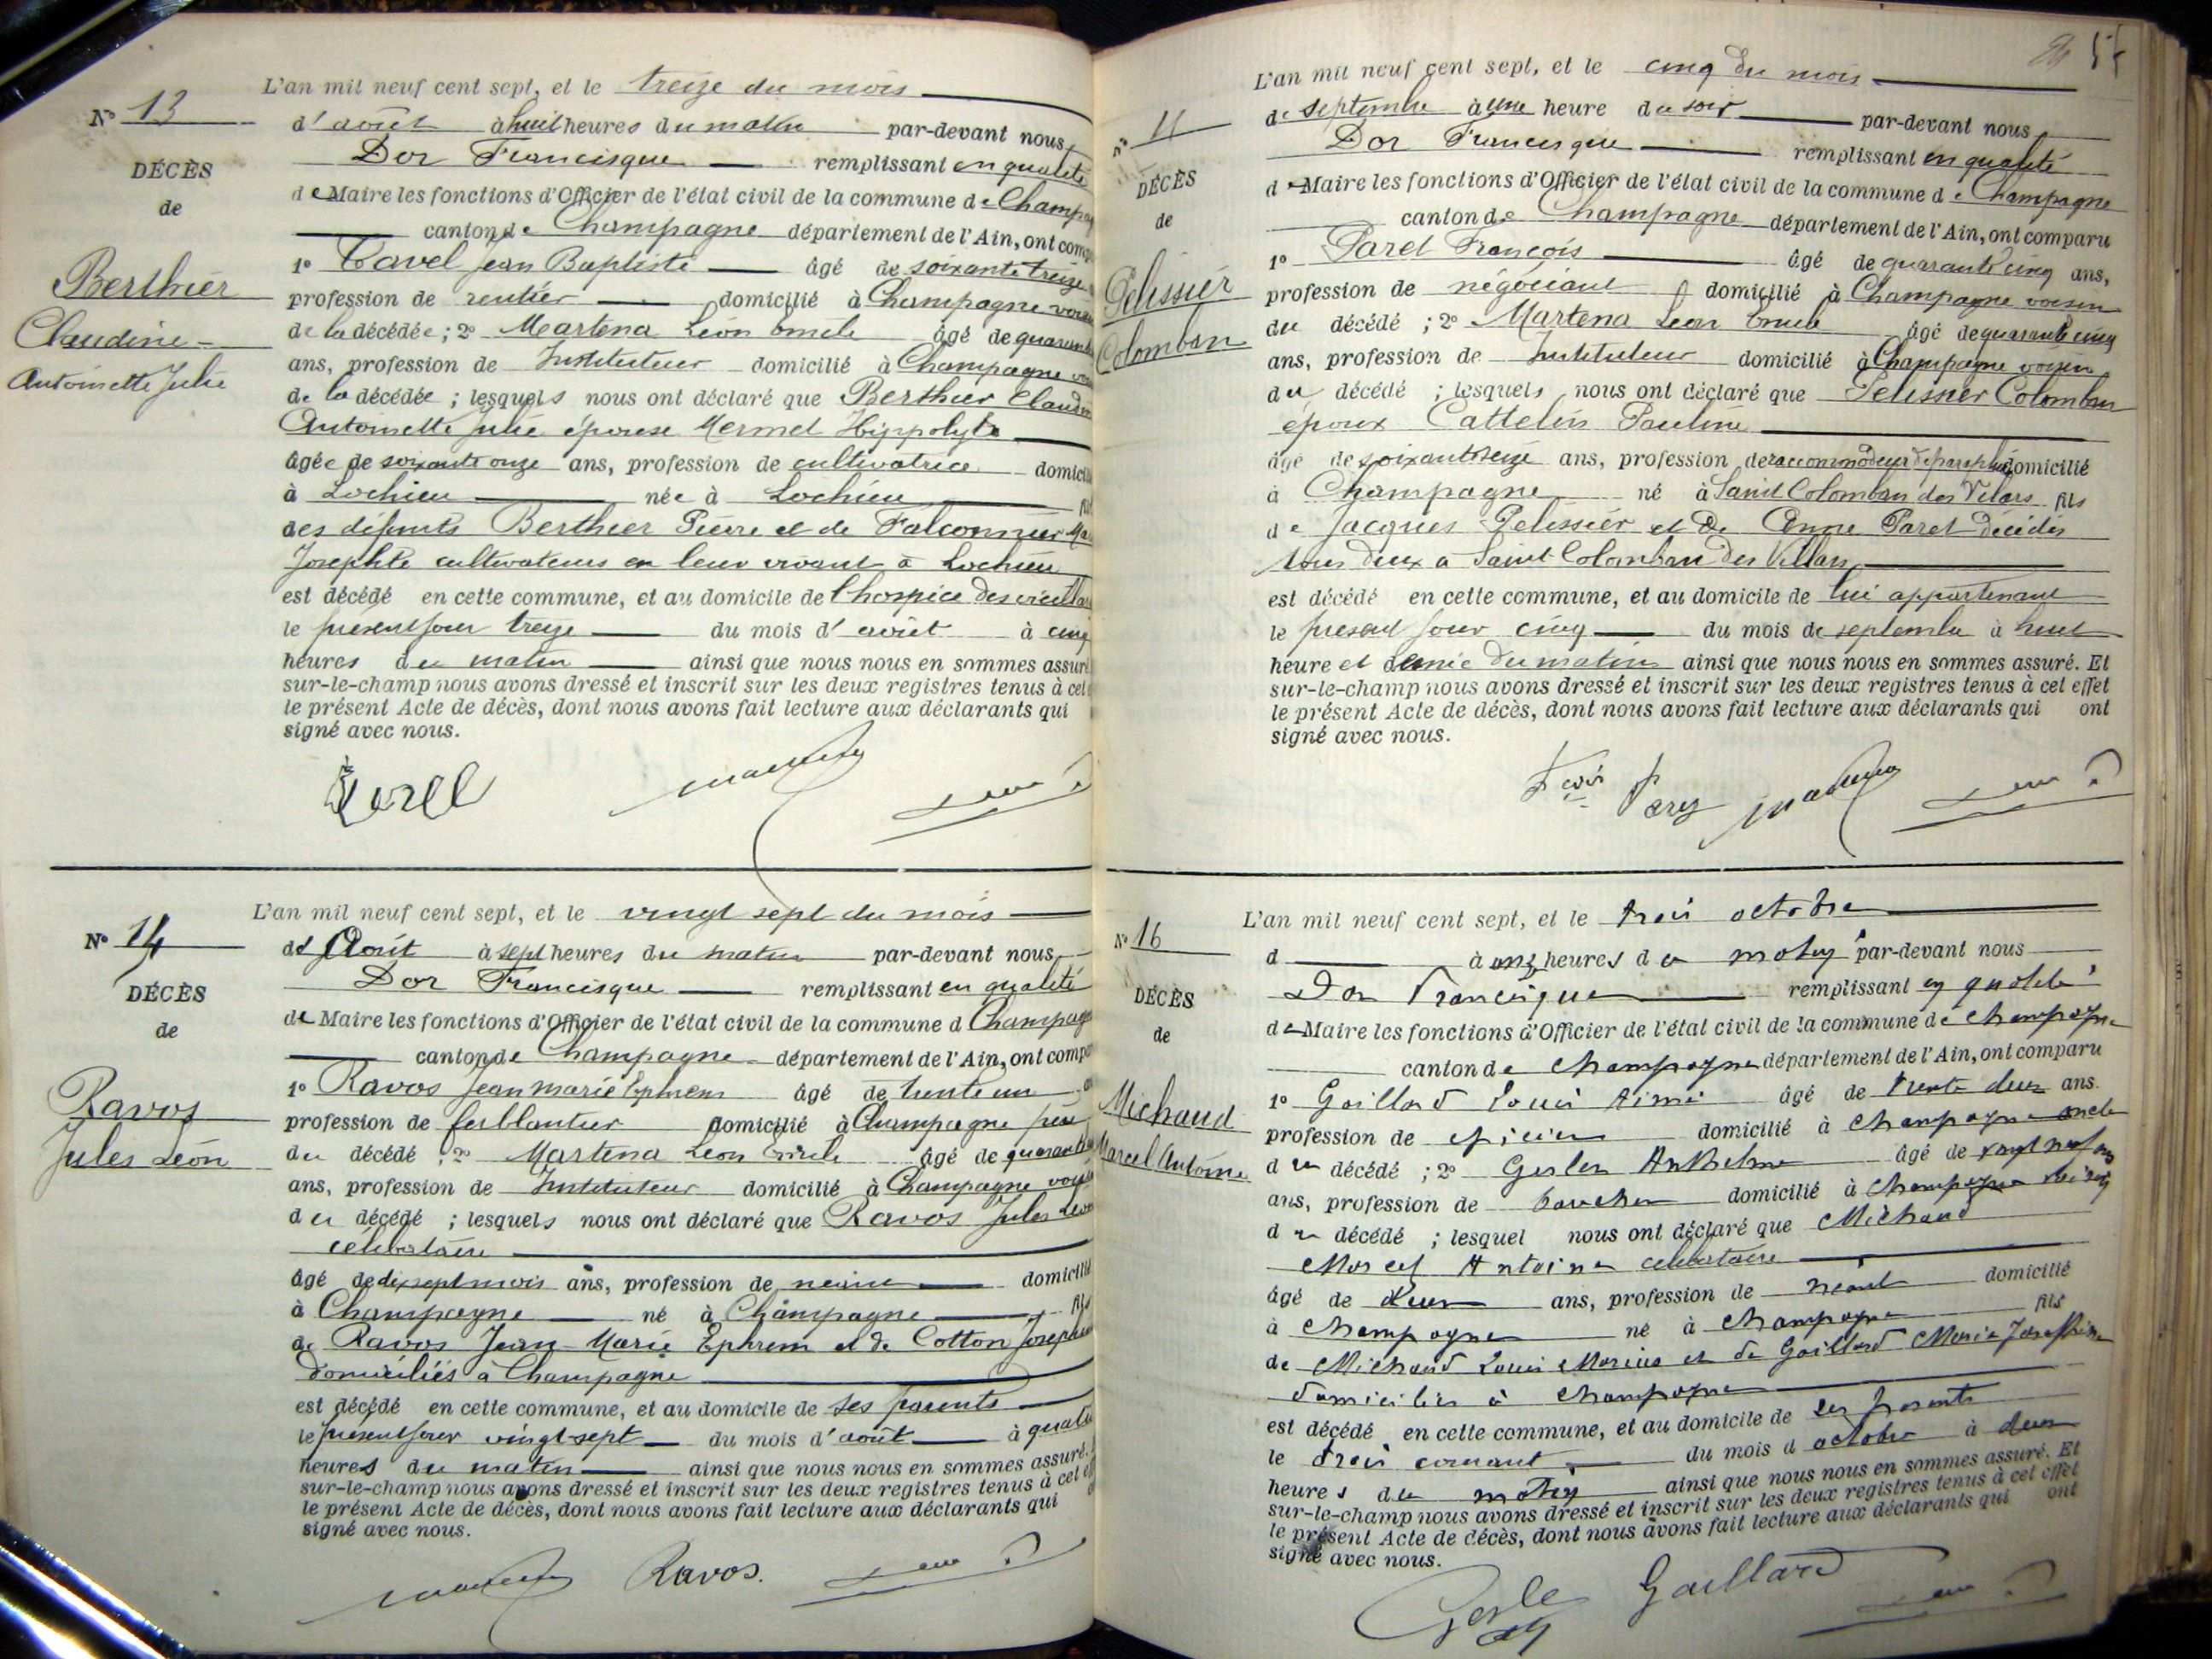 L'an mil neuf cent sept, et le treize du mois
N° 13
d'août à huit heures du matin par-devant nous,
Dor Francisque remplissant en qualité
DÉCÈS
de
de Maire les fonctions d'Officier de l'état civil de la commune de Champag
canton de Champagne département de l'Ain, ont comp
1° Cavel Jean Baptiste âgé de soixante treize
Berthier
Claudine
Antoinette Julie
profession de rentier domicilié à Champagne voisin
de la décédée ; 2° Martena Léon Emile âgé de quarante
ans, profession de Instituteur domicilié à Champagne
de la décédée ; lesquels nous ont déclaré que Berthier Claudin
Antoinette Julie épouse Mermet Hippolyte
âgée de soixante onze ans, profession de cultivatrice domicili
à Lochieu née à Lochieu
des défunts Berthier Pierre et de Falconnier Ma
Josephte cultivateurs en leur vivant à Lochieu
est décédé en cette commune, et au domicile de l'hospice des vieillards
le présent jour treize du mois d'août à cinq
heures du matin ainsi que nous nous en sommes assuré
sur-le-champ nous avons dressé et inscrit sur les deux registres tenus à cet
le présent Acte de décès, dont nous avons fait lecture aux déclarants qui
signé avec nous.
L'an mil neuf cent sept, et le vingt sept du mois
N° 14
de Août à sept heures du matin par-devant nous,
Dor Francisque remplissant en qualité
DÉCÈS
de
de Maire les fonctions d'Officier de l'état civil de la commune d Champagn
canton de Champagne département de l'Ain, ont compa
1° Ravos Jean Marie Ephrem âgé de trente un
Ravos
Jules Léon
profession de ferblantier domicilié à Champagne père
du décédé ; 2° Martena Léon Emile âgé de quarante
ans, profession de Instituteur domicilié à Champagne voisin
du décédé ; lesquels nous ont déclaré que Ravos Jules Léon
célibataire
âgé de dix sept mois ans, profession de domicilié
à Champagne né à Champagne fils
de Ravos Jean-Marie Ephrem et de Cotton Josephine
domiciliés à Champagne
est décédé en cette commune, et au domicile de ses parents
le présent jour vingt-sept du mois d'août à quatre
heures du matin ainsi que nous nous en sommes assuré.
sur-le-champ nous avons dressé et inscrit sur les deux registres tenus à cet eff
le présent Acte de décès, dont nous avons fait lecture aux déclarants qui
signé avec nous.
Ravos.
L'an mil neuf cent sept, et le cinq du mois
de septembre à une heure du soir par-devant nous
Dor Francisque remplissant en qualité
DÉCÈS
de
de Maire les fonctions d'Officier de l'état civil de la commune de Champagne
canton de Champagne département de l'Ain, ont comparu
1° Paret François âgé de quarante cinq ans,
Pelissier
Colomban
profession de négociant domicilié à Champagne voisin
du décédé ; 2° Martena Léon Emile âgé de quarante cinq
ans, profession de Instituteur domicilié à Champagne voisin
du décédé ; lesquels nous ont déclaré que Pelissier Colomban
époux Cattelin Pauline
âgé de soixante seize ans, profession de raccommodeur de parapluies domicilié
à Champagne né à Saint Colomban des Villars fils
de Jacques Pelissier et de Anne Paret décédés
tous deux à Saint Colomban des Villars
est décédé en cette commune, et au domicile de lui appartenant
le présent jour cinq du mois de septembre à huit
heure et demie du matin ainsi que nous nous en sommes assuré. Et
sur-le-champ nous avons dressé et inscrit sur les deux registres tenus à cet effet
le présent Acte de décès, dont nous avons fait lecture aux déclarants qui ont
signé avec nous.
L'an mil neuf cent sept, et le trois octobre
N° 16
d à onze heures du matin par-devant nous
Dor Francisque remplissant en qualité
DÉCÈS
de
de Maire les fonctions d'Officier de l'état civil de la commune de Champagne
canton de Champagne département de l'Ain, ont comparu
1° Gaillard Louis Aimé âgé de trente deux ans
Michaud
Marcel Antoine
profession de épicier domicilié à Champagne oncle
du décédé ; 2° Gesler Anthelme âgé de vingt neuf ans
ans, profession de boucher domicilié à Champagne voisin
du décédé ; lesquel nous ont déclaré que Michaud
Marcel Antoine célibataire
âgé de deux ans, profession de néant domicilié
à Champagne né à Champagne fils
de Michaud Louis Marius et de Gaillard Marie Josephine
domiciliés à Champagne
est décédé en cette commune, et au domicile de ses parents
le trois courant du mois d octobre à deux
heures du matin ainsi que nous nous en sommes assuré. Et
sur-le-champ nous avons dressé et inscrit sur les deux registres tenus à cet effet
le présent Acte de décès, dont nous avons fait lecture aux déclarants qui ont
signé avec nous.
Gaillard